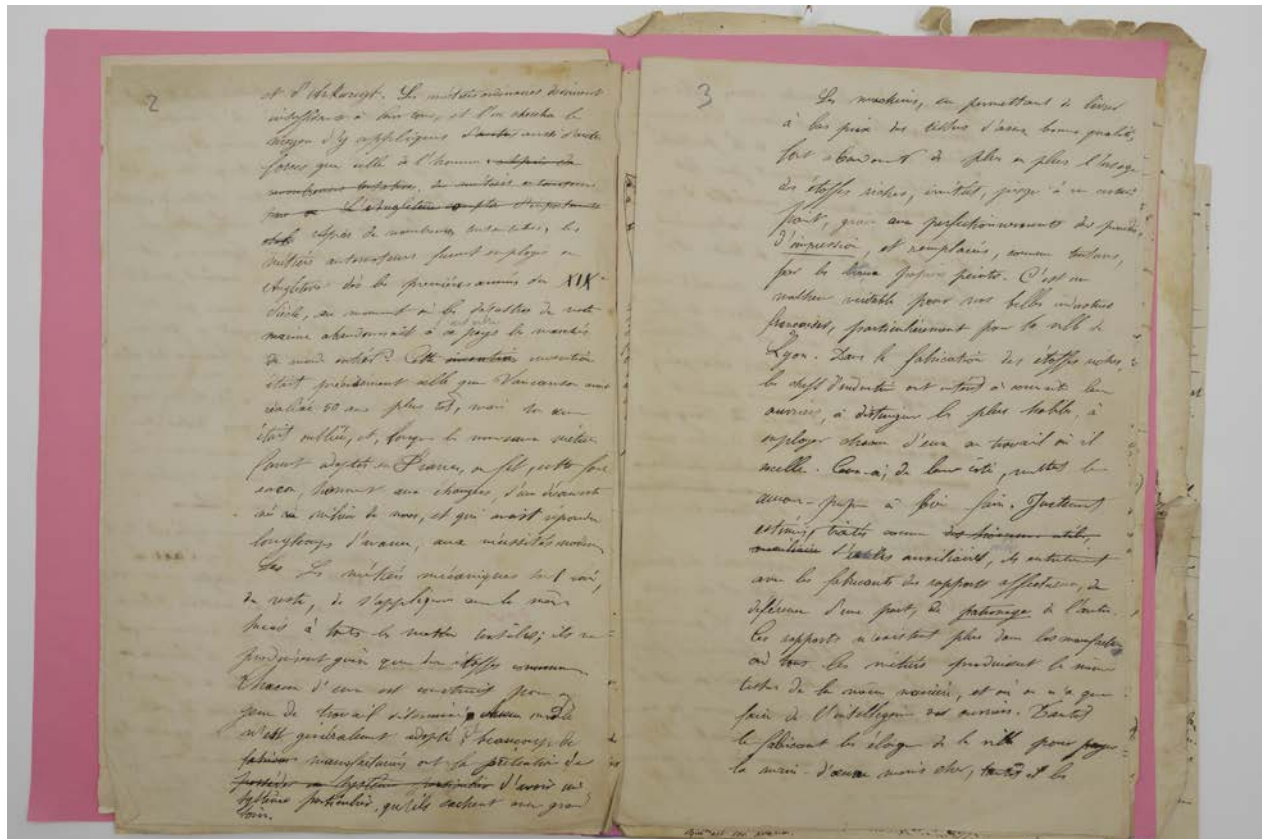 2
et d'Arkwright. Les métiers ordinaires devinrent
insuffisants à leur tour, et l'on chercha le
moyen d'y appliquer aussi d'autres
forces que celle de l'homme. après de
nombreuses tentatives, des métiers
L'Angleterre compta
Après de nombreuses tentatives, les
métiers automateurs furent employés en
Angleterre dès les premières années du XIXe
siècle, au moment où les désastres de notre
marine abandonnait à ce pays les marchés
du monde entier. Cette invention invention
était précisément celle que Vaucanson avait
réalisée 50 ans plus tôt, mais son œuvre
était oubliée, et, lorsque les nouveaux métiers
furent adoptés en France, on fit cette fois
encore, honneur aux étrangers, d'une découverte
née au milieu de nous, et qui avait répondu
longtemps d'avance, aux nécessités modernes
Les métiers mécaniques sont loin,
du reste, de s'appliquer avec le même
succès à toutes les matières textiles; ils ne
produisent guère que des étoffes communes
Chacun d'eux est construit pour un
genre de travail déterminé. Aucun modèle
n'est généralement adopté; beaucoup de
manufacturiers ont la prétention de
posséder un système particulier d'avoir un
système particulier, qu'ils cachent avec grand
soin.
3
Les machines, en permettant de livrer
à bas prix des tissus d'assez bonne qualité,
font abandonner de plus en plus l'usage
des étoffes riches, imitées, jusqu'à un certain
point, grâce aux perfectionnements des procédés
d'impression, et remplacées, comme tentures,
par les beaux papiers peints. C'est un
malheur véritable pour nos belles industries
françaises, particulièrement pour la ville de
Lyon. Dans la fabrication des étoffes riches,
les chefs d'industrie ont intérêt à connaître leurs
ouvriers, à distinguer les plus habiles, à
employer chacun d'eux au travail où il
excelle. Ceux-ci, de leur côté, mettent leur
amour-propre à bien faire. Justement
estimés, traités comme
d'utiles auxiliaires, ils entretiennent
avec les fabricants des rapports affectueux, de
déférence d'une part, de patronage de l'autre.
Ces rapports n'existent plus dans les manufactures
où tous les métiers produisent le même
tissu de la même manière, et où on n'a que
faire de l'intelligence des ouvriers. Tantôt
le fabricant les éloigne de la ville pour payer
la main-d'œuvre moins cher, tantôt il les